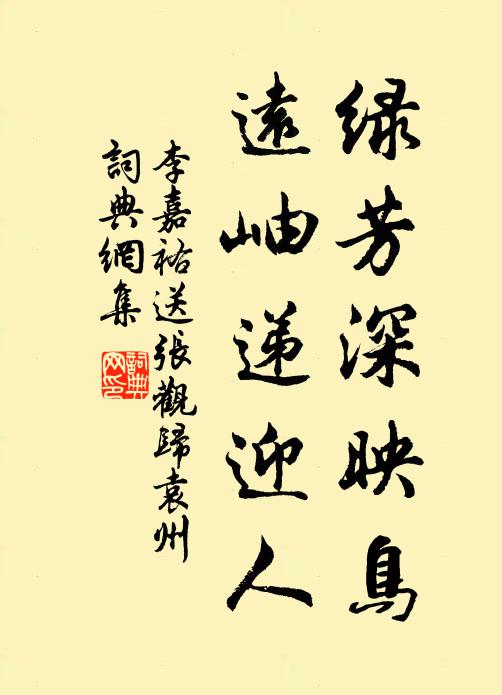 绿芳深映鳥
遠岫递迎人
李嘉祐送張觀歸袁州
詞典網集
詞典网印